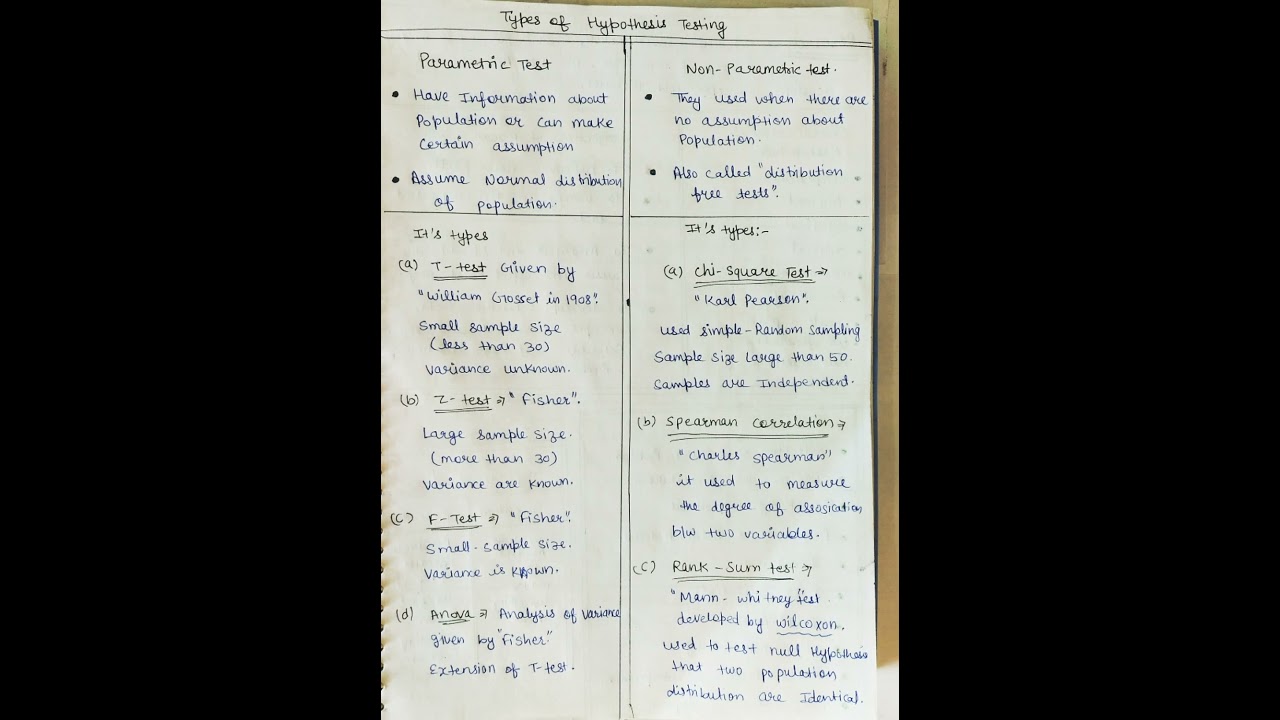 Types of Hypothesis Testing
Parametric Test
• Have Information about
Population or can make
Certain assumption
• Assume Normal distribution
of population.
It's types
(a) T-test Given by
"William Grosset in 1908".
Small sample size
(less than 30)
variance unknown.
(b) Z-test ⇒ "Fisher".
Large sample size.
(more than 30)
variance are known.
(C) F-Test ⇒ "Fisher".
Small-sample size.
variance is known.
(d) Anova ⇒ Analysis of variance
given by "Fisher"
Extension of T-test.
Non-Parametric test.
• They used when there are
no assumption about
Population.
• Also called "distribution
free tests".
It's types:-
(a) Chi-Square Test ⇒
"Karl Pearson".
used simple-Random sampling
Sample size large than 50.
Samples are Independent.
(b) Spearman Correlation ⇒
"Charles Spearman"
it used to measure
the degree of assosication
b/w two variables.
(C) Rank-Sum test ⇒
"Mann-whitney test"
developed by wilcoxon.
used to test null Hypothesis
that two population
distribution are Identical.